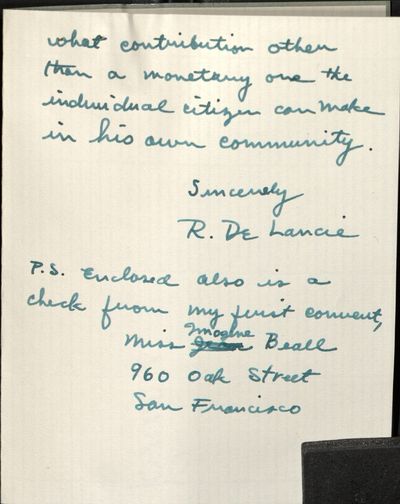 what contribution other
than a monetary one the
individual citizen can make
in his own community.
Sincerely
R. De Lancie
P.S. Enclosed also is a
check from my first convert,
Miss Imogene Beall
960 Oak Street
San Francisco